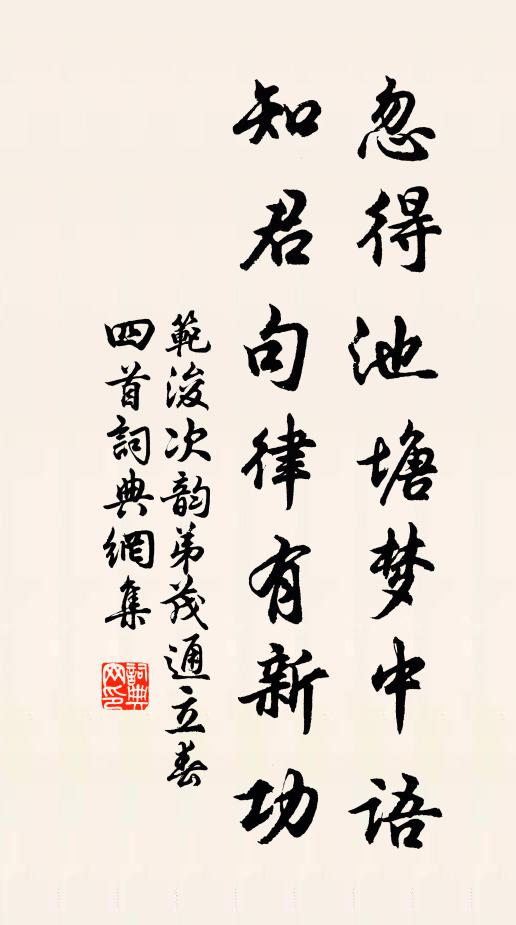 忽得池塘梦中语
知君句律有新功
範浚次韵弟茂通立春
四首詞典網集
詞典网印